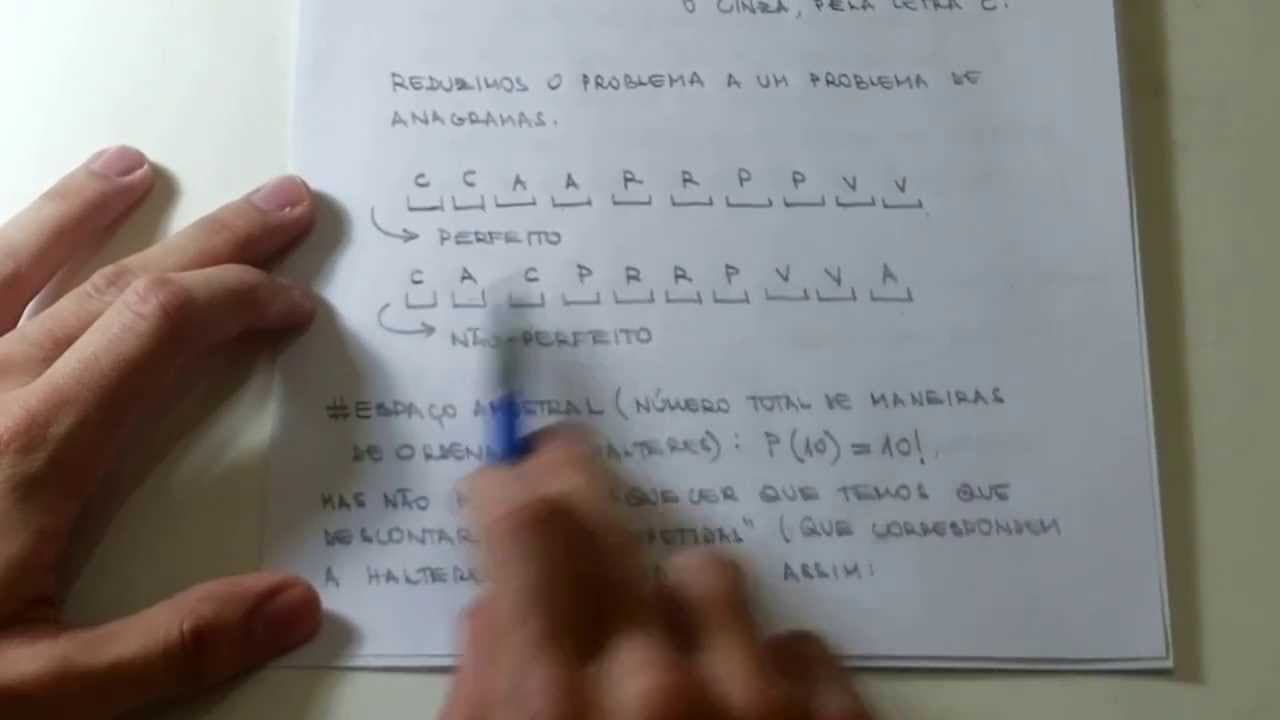 O CINZA, PELA LETRA C.
REDUZIMOS O PROBLEMA A UM PROBLEMA DE
ANAGRAMAS.
C C A A R R P P V V
PERFEITO
C A C P R R P V V A
NÃO-PERFEITO
#ESPAÇO AMOSTRAL (NÚMERO TOTAL DE MANEIRAS
DE ORDENA HALTERES): P(10) = 10!.
MAS NÃO QUE TEMOS QUE
DESCONTAR (QUE CORRESPONDEM
A ASSIM: